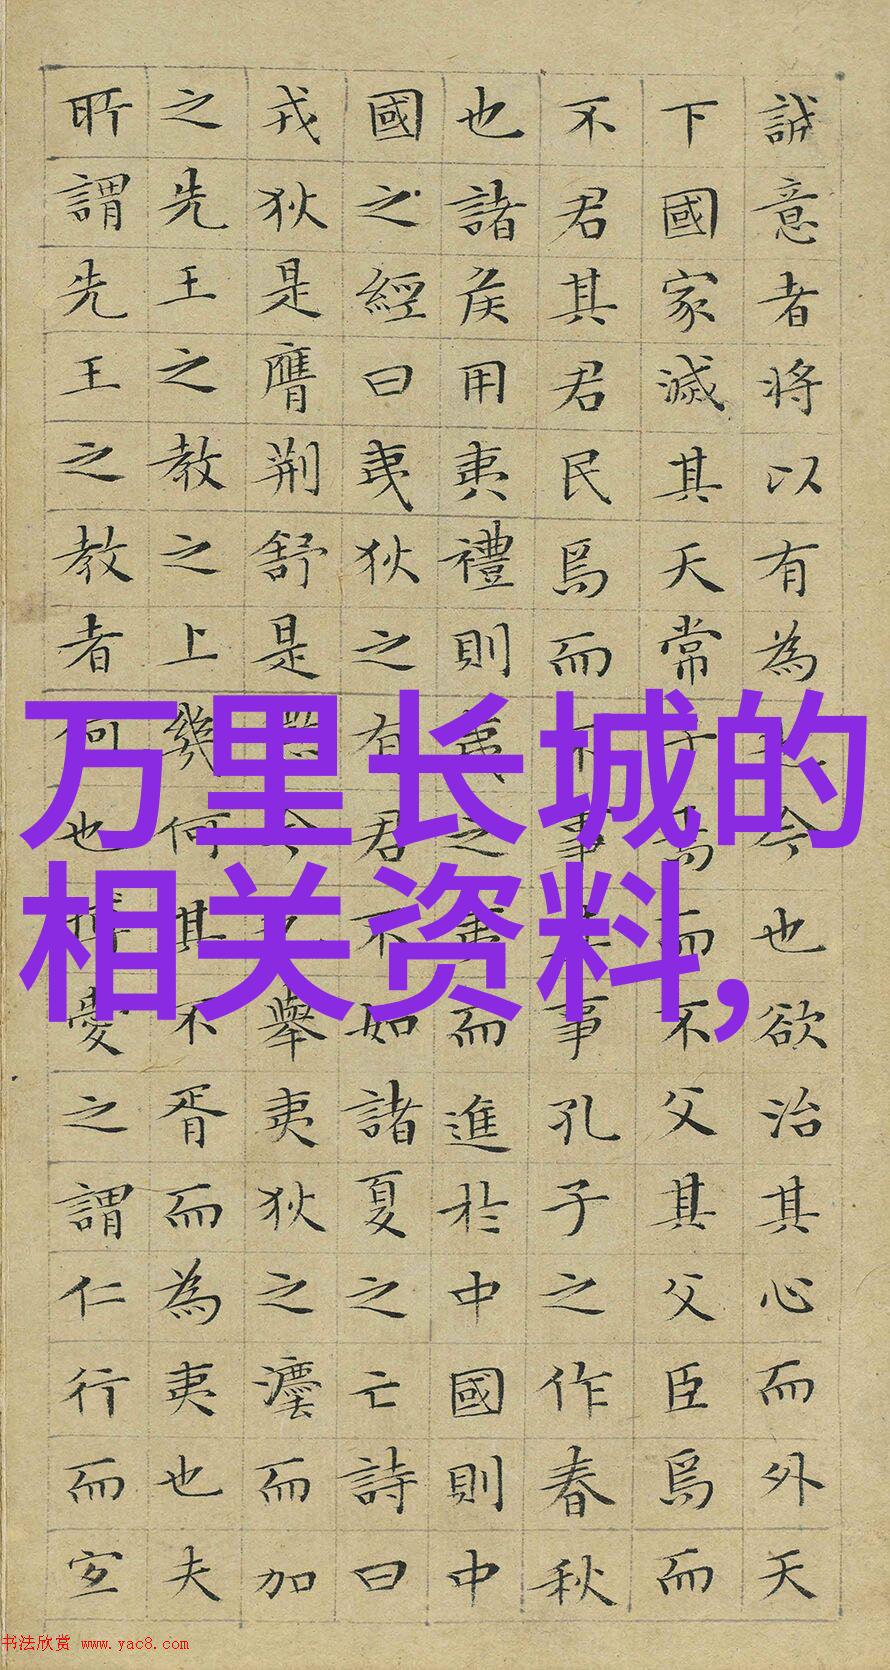 誠意者将以有為也今也欲治其心而外天
下國家滅其天常子焉而不父其父臣焉而
不君其君民焉而不事其事孔子之作春秋
也諸侯用夷禮則夷之夷而進於中國則中
國之經曰夷狄之有君不如諸夏之亡詩曰
戎狄是膺荆舒是懲今也舉夷狄之灋而加
之先王之教之上幾何其不胥而為夷也夫
所謂先王之教者何也博愛之謂仁行而宜
万里长城的
相关资料,
书法欣赏 www.yac8.com